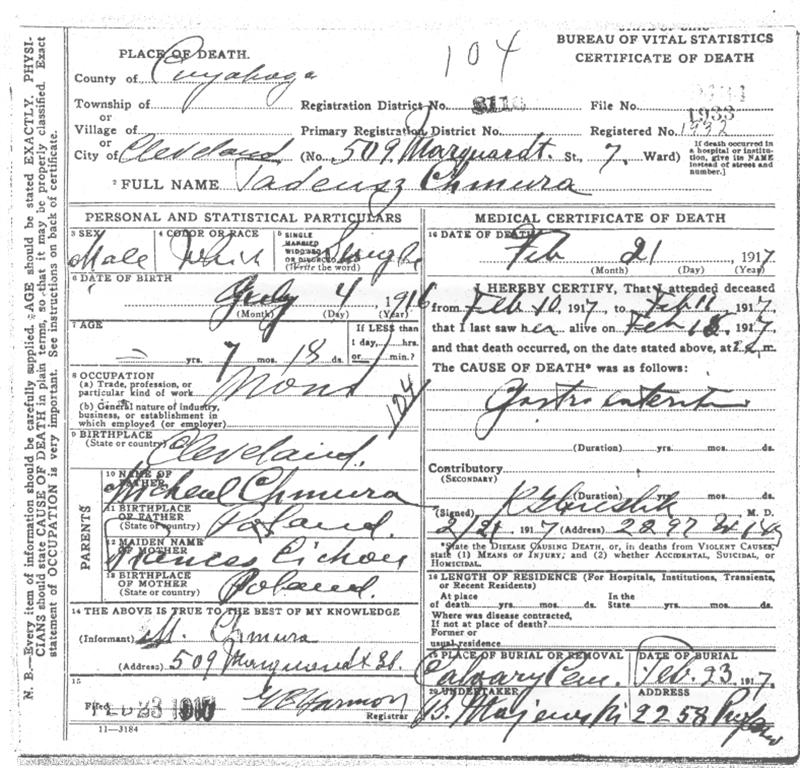 N. B.—Every item of information should be carefully supplied. AGE should be stated EXACTLY. PHYSI-
CIANS should state CAUSE OF DEATH in plain terms, so that it may be properly classified. Exact
statement of OCCUPATION is very important. See instructions on back of certificate.
104
BUREAU OF VITAL STATISTICS
CERTIFICATE OF DEATH
PLACE OF DEATH.
County of Cuyahoga
Township of Registration District No. File No.
or
1933
Village of Primary Registration District No. Registered No. 1932
or
City of Cleveland (No. 509 Marquardt. St., 7. Ward)
[If death occurred in
a hospital or institu-
tion, give its NAME
instead of street and
number.]
2 FULL NAME Tadeusz Chmura
PERSONAL AND STATISTICAL PARTICULARS
3 SEX
Male
4 COLOR OR RACE
Whit
5 SINGLE
MARRIED
WIDOWED
OR DIVORCED
(Write the word)
Single
6 DATE OF BIRTH
July 4, 1916
(Month) (Day) (Year)
7 AGE
— yrs. 7 mos. 18 ds.
If LESS than
1 day,....hrs.
or....min.?
8 OCCUPATION
(a) Trade, profession, or
particular kind of work
None
(b) General nature of industry,
business, or establishment in
which employed (or employer)
104
9 BIRTHPLACE
(State or country)
Cleveland.
PARENTS
10 NAME OF
FATHER
Micheal Chmura
11 BIRTHPLACE
OF FATHER
(State or country)
Poland.
12 MAIDEN NAME
OF MOTHER
Frances Cichon
13 BIRTHPLACE
OF MOTHER
(State or country)
Poland.
14 THE ABOVE IS TRUE TO THE BEST OF MY KNOWLEDGE
(Informant) M. Chmura
(Address) 509 Marquardt St.
15
Filed FEB 23 1917
Registrar
11—3184
MEDICAL CERTIFICATE OF DEATH
16 DATE OF DEATH
Feb 21, 1917
(Month) (Day) (Year)
I HEREBY CERTIFY, That I attended deceased
from Feb 10, 1917, to Feb , 1917,
that I last saw her alive on Feb , 1917,
and that death occurred, on the date stated above, at m.
The CAUSE OF DEATH* was as follows:
Gastro enteritis
(Duration) yrs. mos. ds.
Contributory
(SECONDARY)
(Duration) yrs. mos. ds.
(Signed) M. D.
2/21, 1917 (Address) 2297 W 14
*State the DISEASE CAUSING DEATH, or, in deaths from VIOLENT CAUSES,
state (1) MEANS OF INJURY; and (2) whether ACCIDENTAL, SUICIDAL, or
HOMICIDAL.
18 LENGTH OF RESIDENCE (For Hospitals, Institutions, Transients,
or Recent Residents)
At place In the
of death yrs. mos. ds. State yrs. mos. ds.
Where was disease contracted,
if not at place of death?
Former or
usual residence
19 PLACE OF BURIAL OR REMOVAL
Calvary Cem.
DATE OF BURIAL
Feb. 23, 1917.
20 UNDERTAKER
B. Majewski
ADDRESS
2258